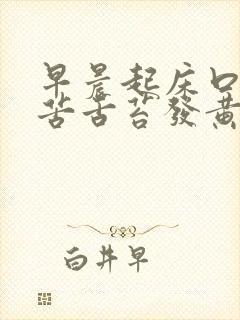 早晨起床口
苦舌苔發黃
白井早